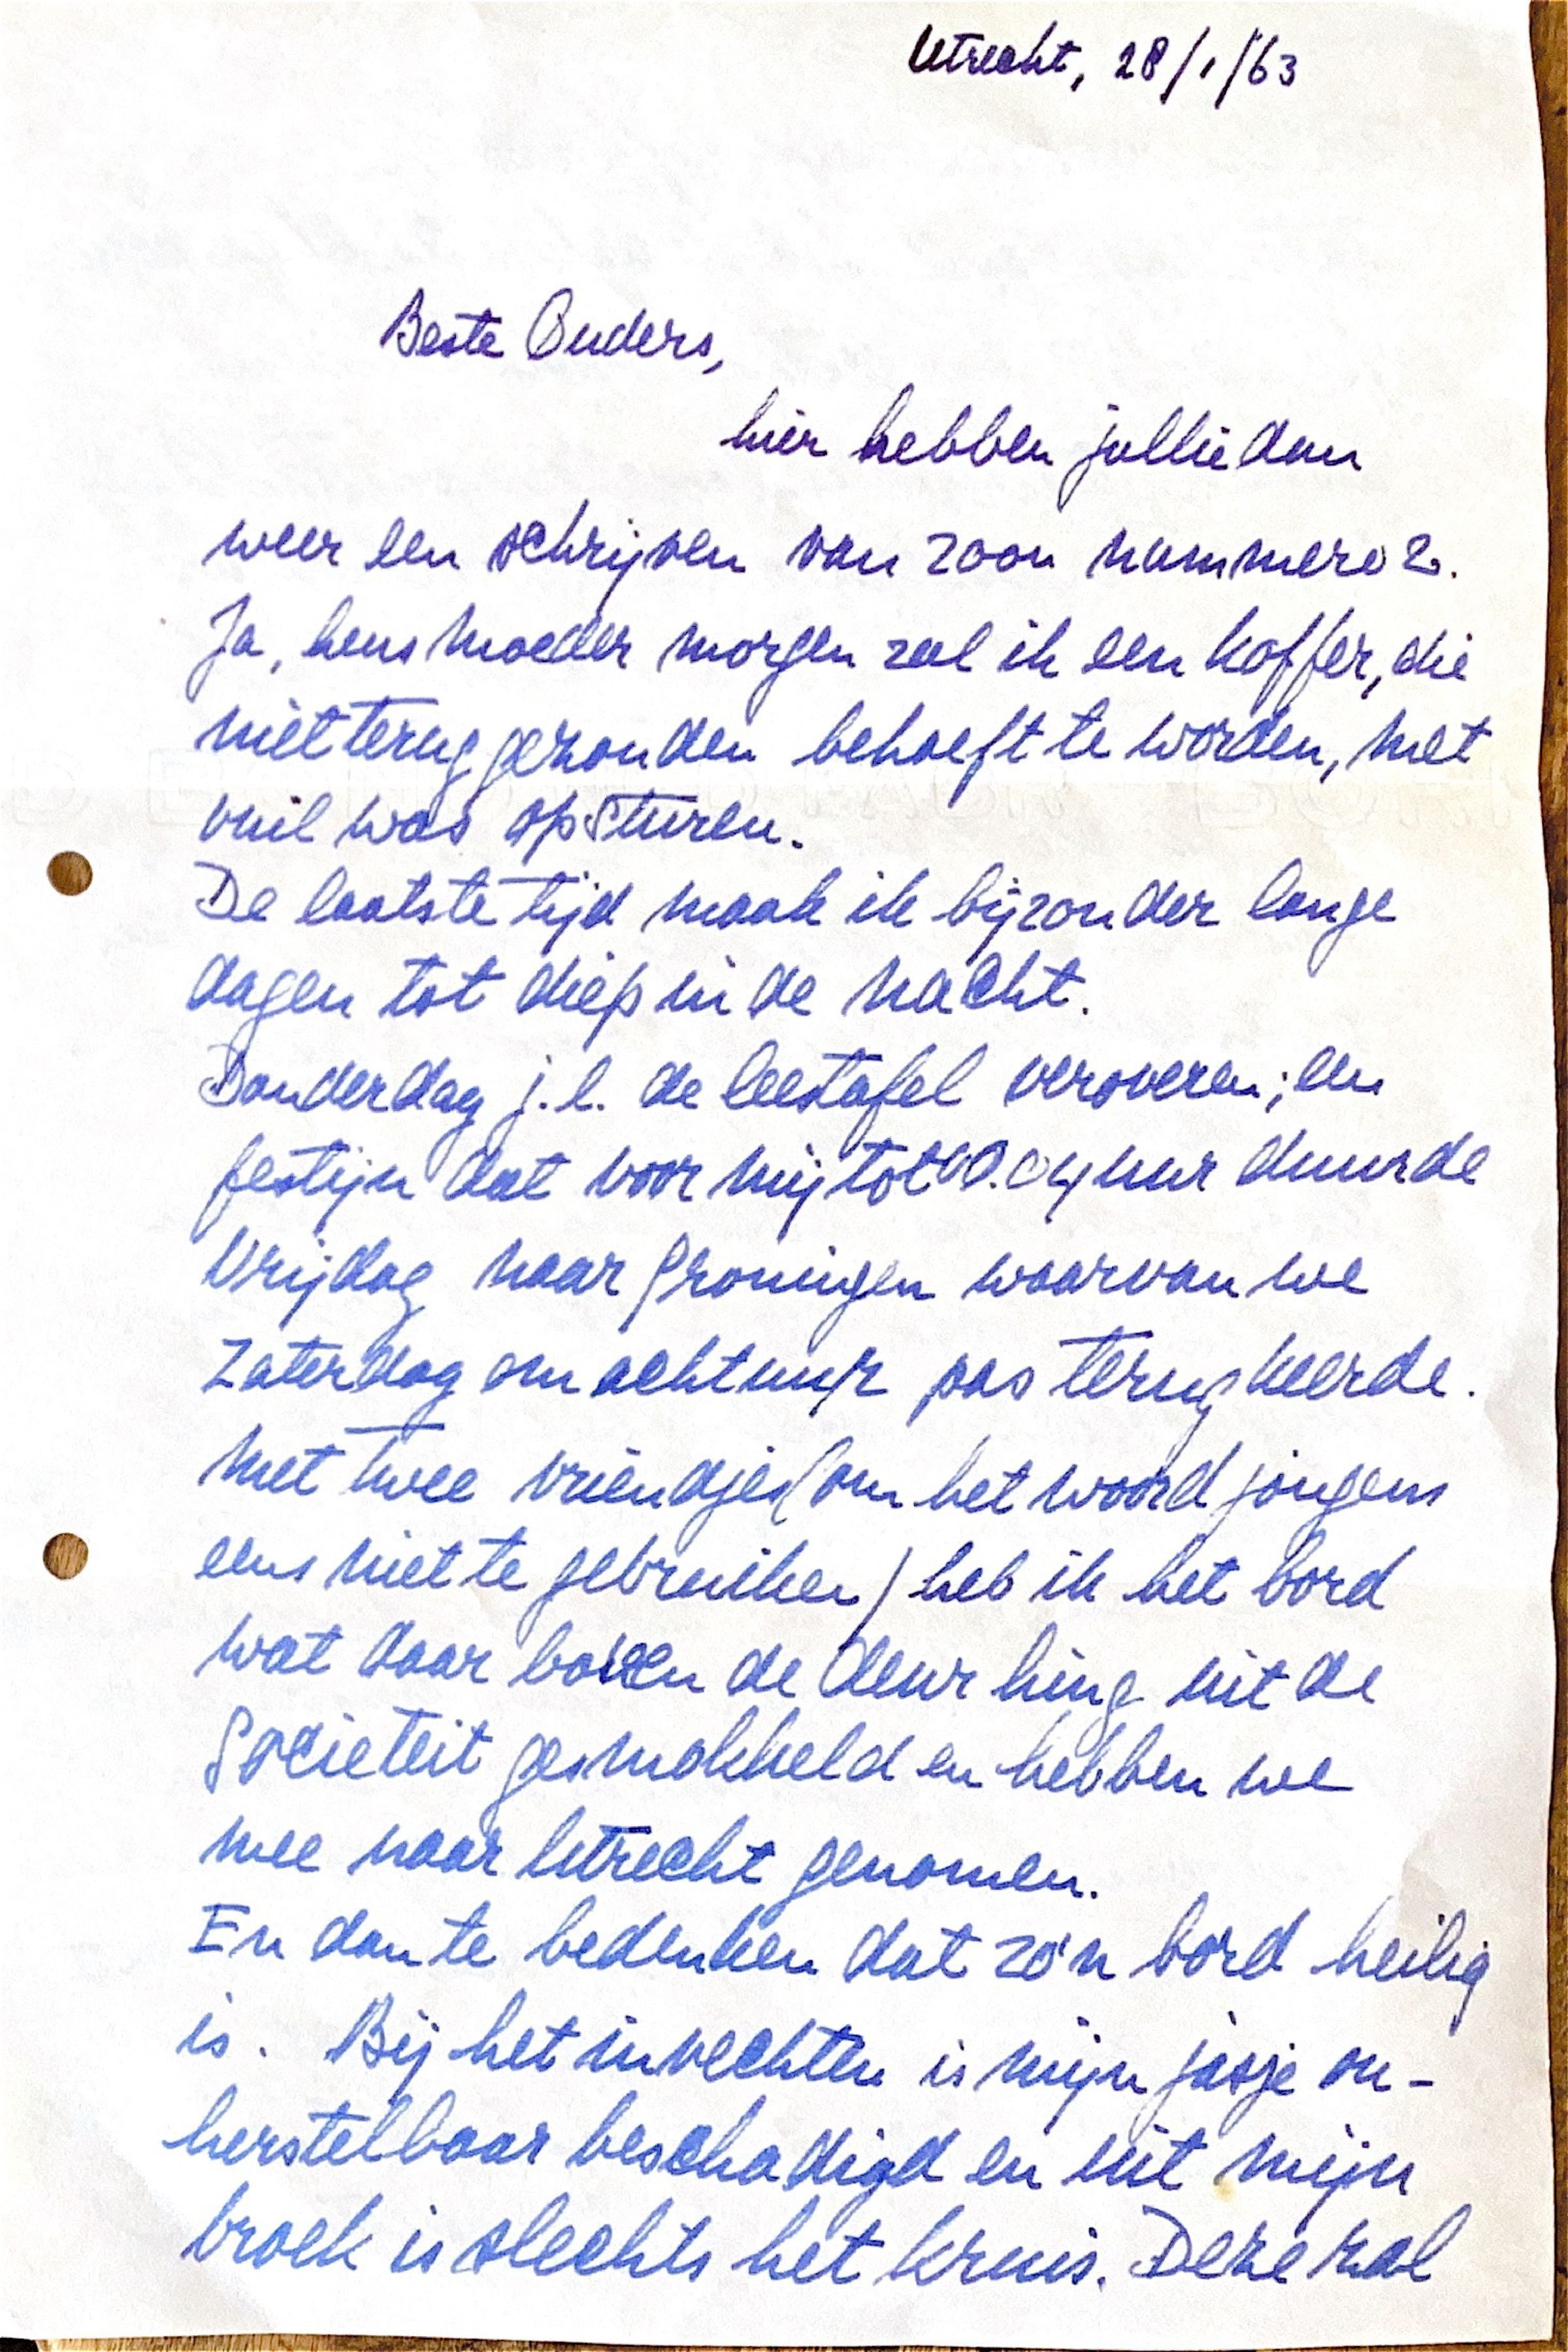 Utrecht, 28/1/'63
Beste Ouders,
hier hebben jullie dan
weer een schrijven van zoon nummero 2.
Ja, heus moeder morgen zal ik een koffer, die
niet terug gezonden behoeft te worden, met
vuil was opsturen.
De laatste tijd maak ik bijzonder lange
dagen tot diep in de nacht.
Donderdag j.l. de leestafel veroveren; een
festijn dat voor mij tot 00.04 uur duurde
Vrijdag naar Groningen waarvan we
Zaterdag om acht uur pas terugkeerde.
Met twee vriendjes (om het woord jongens
eens niet te gebruiken) heb ik het bord
wat daar boven de deur hing uit de
Sociëteit gesmokkeld en hebben we
mee naar Utrecht genomen.
En dan te bedenken dat zo'n bord heilig
is. Bij het invechten is mijn jasje on-
herstelbaar beschadigd en uit mijn
broek is slechts het kruis. Deze zal